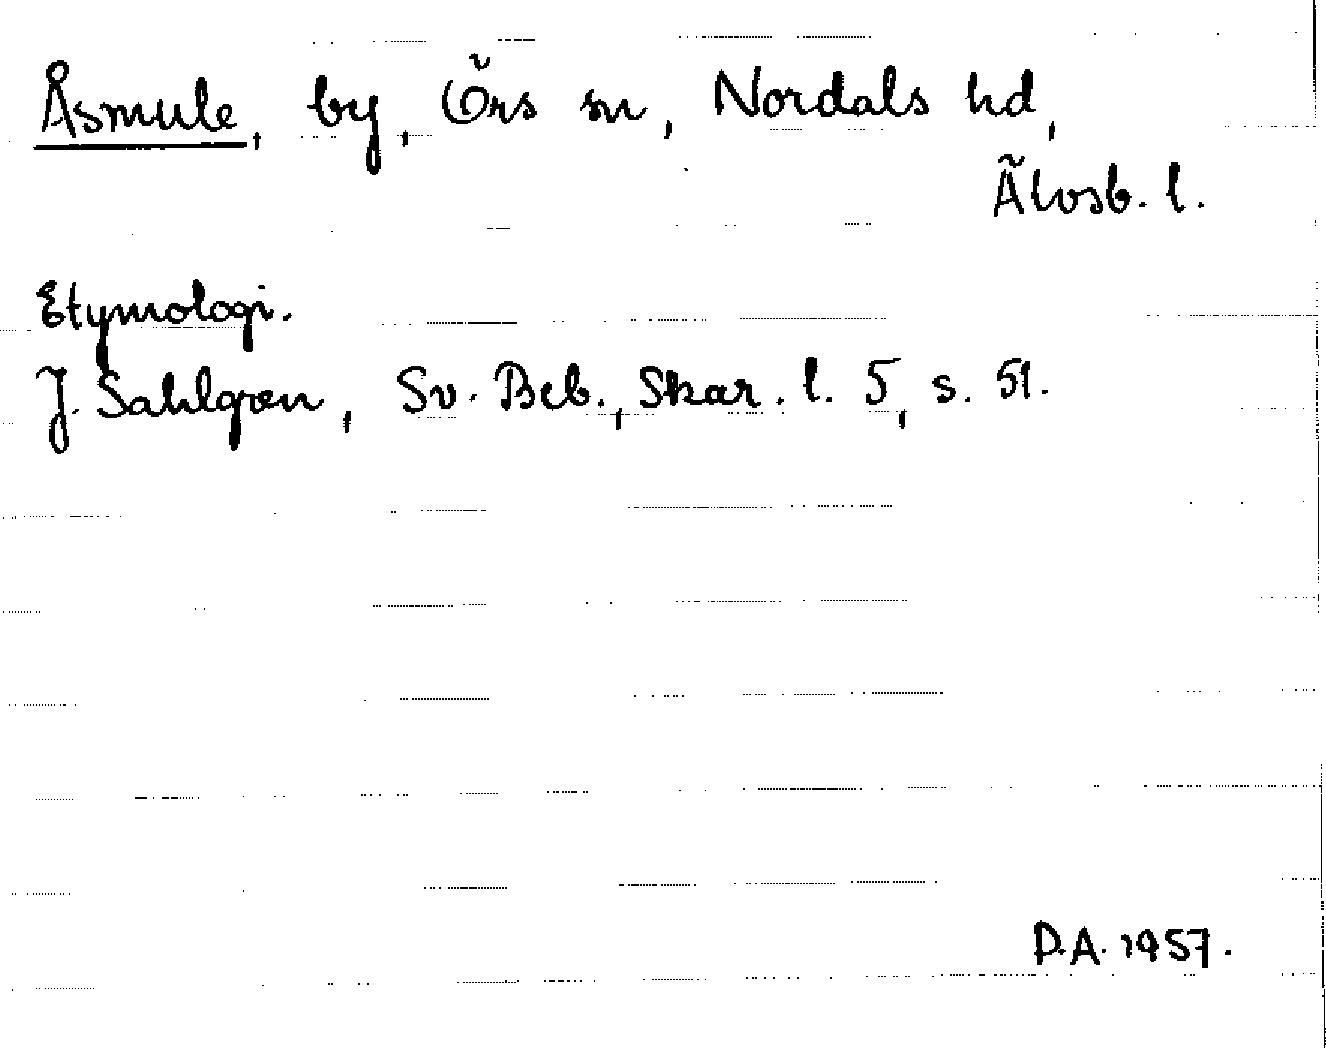 Åsmule, by, Örs sn, Nordals hd,
Älvsb. l.
Etymologi.
J. Sahlgren, Sv. Beb., Skar. l. 5, s. 51.
D.A. 1957.